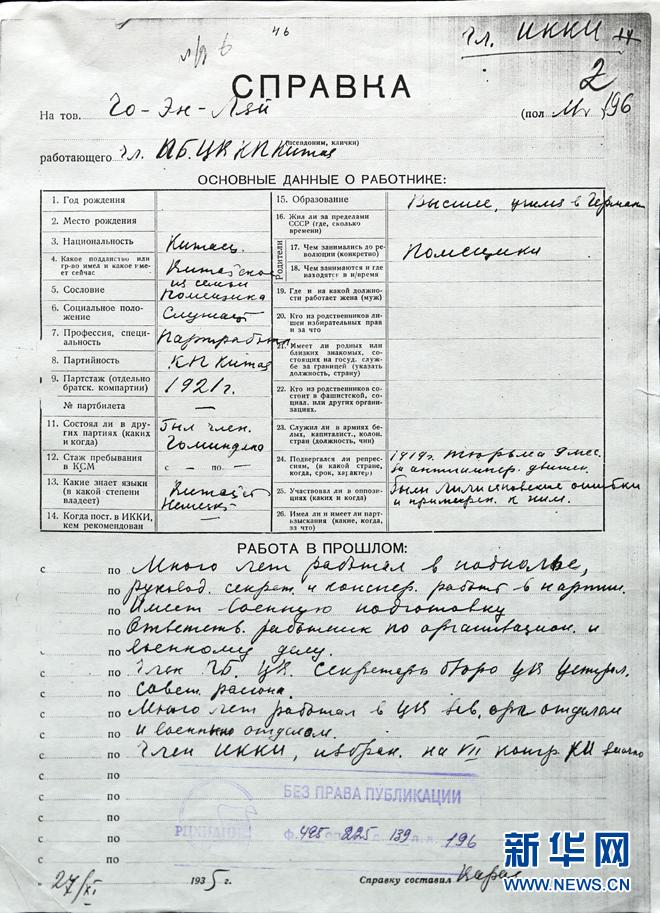 46
Чл. ИККИ
2
СПРАВКА
На тов. Чо-Эн-Лай (пол М. 196
(псевдоним, клички)
работающего Чл. П.Б. ЦК КП Китая
ОСНОВНЫЕ ДАННЫЕ О РАБОТНИКЕ:
1. Год рождения
2. Место рождения
3. Национальность Китаец
4. Какое подданство или гр-во имел и какое имеет сейчас Китайское
5. Сословие из семьи помещика
6. Социальное положение Служащ
7. Профессия, специальность Партработн
8. Партийность КП Китая
9. Партстаж (отдельно братск. компартии) 1921 г.
№ партбилета —
11. Состоял ли в других партиях (каких и когда) Был член. Гоминдана
12. Стаж пребывания в КСМ с — по —
13. Какие знает языки (в какой степени владеет) Китайск Немецк
14. Когда пост. в ИККИ, кем рекомендован
15. Образование Высшее, учился в Герман
16. Жил ли за пределами СССР (где, сколько времени)
Родители
17. Чем занимались до революции (конкретно) Помещики
18. Чем занимаются и где находятся в н/время
19. Где и на какой должности работает жена (муж)
20. Кто из родственников лишен избирательных прав и за что
21. Имеет ли родных или близких знакомых, состоящих на госуд. службе за границей (указать должность, страну)
22. Кто из родственников состоит в фашистской, социал. или других организациях.
23. Служил ли в армиях белых, капиталист., колон. стран (должность, чин)
24. Подвергался ли репрессиям, (в какой стране, когда, срок, характер) 1919 г. тюрьма 9 мес. за антиимпер. движен.
25. Участвовал ли в оппозиции (каких и когда) Были Лилисановские ошибки и примирен. к ним.
26. Имел ли и имеет ли партвзыскания (какие, когда, за что)
РАБОТА В ПРОШЛОМ:
с по Много лет работал в подполье,
с по руковод. секретн. и конспер. работ в партии.
по Имеет военную подготовку
по Ответств. работник по организацион. и
с по военному делу.
с по Член П.Б. ЦК. Секретарь бюро ЦК централ.
с по совет. района.
с по Много лет работал в ЦК зав. орг отделом
с по и военным отделом.
с по Член ИККИ, избран. на VII конгр КИ заочно
с по
с по
с по
с по
с по
БЕЗ ПРАВА ПУБЛИКАЦИИ
РЦХИДНИ
ф. 495 оп. 225 д. 139 л. 196
27/XI 1935 г. Справку составил
新华网
WWW.NEWS.CN